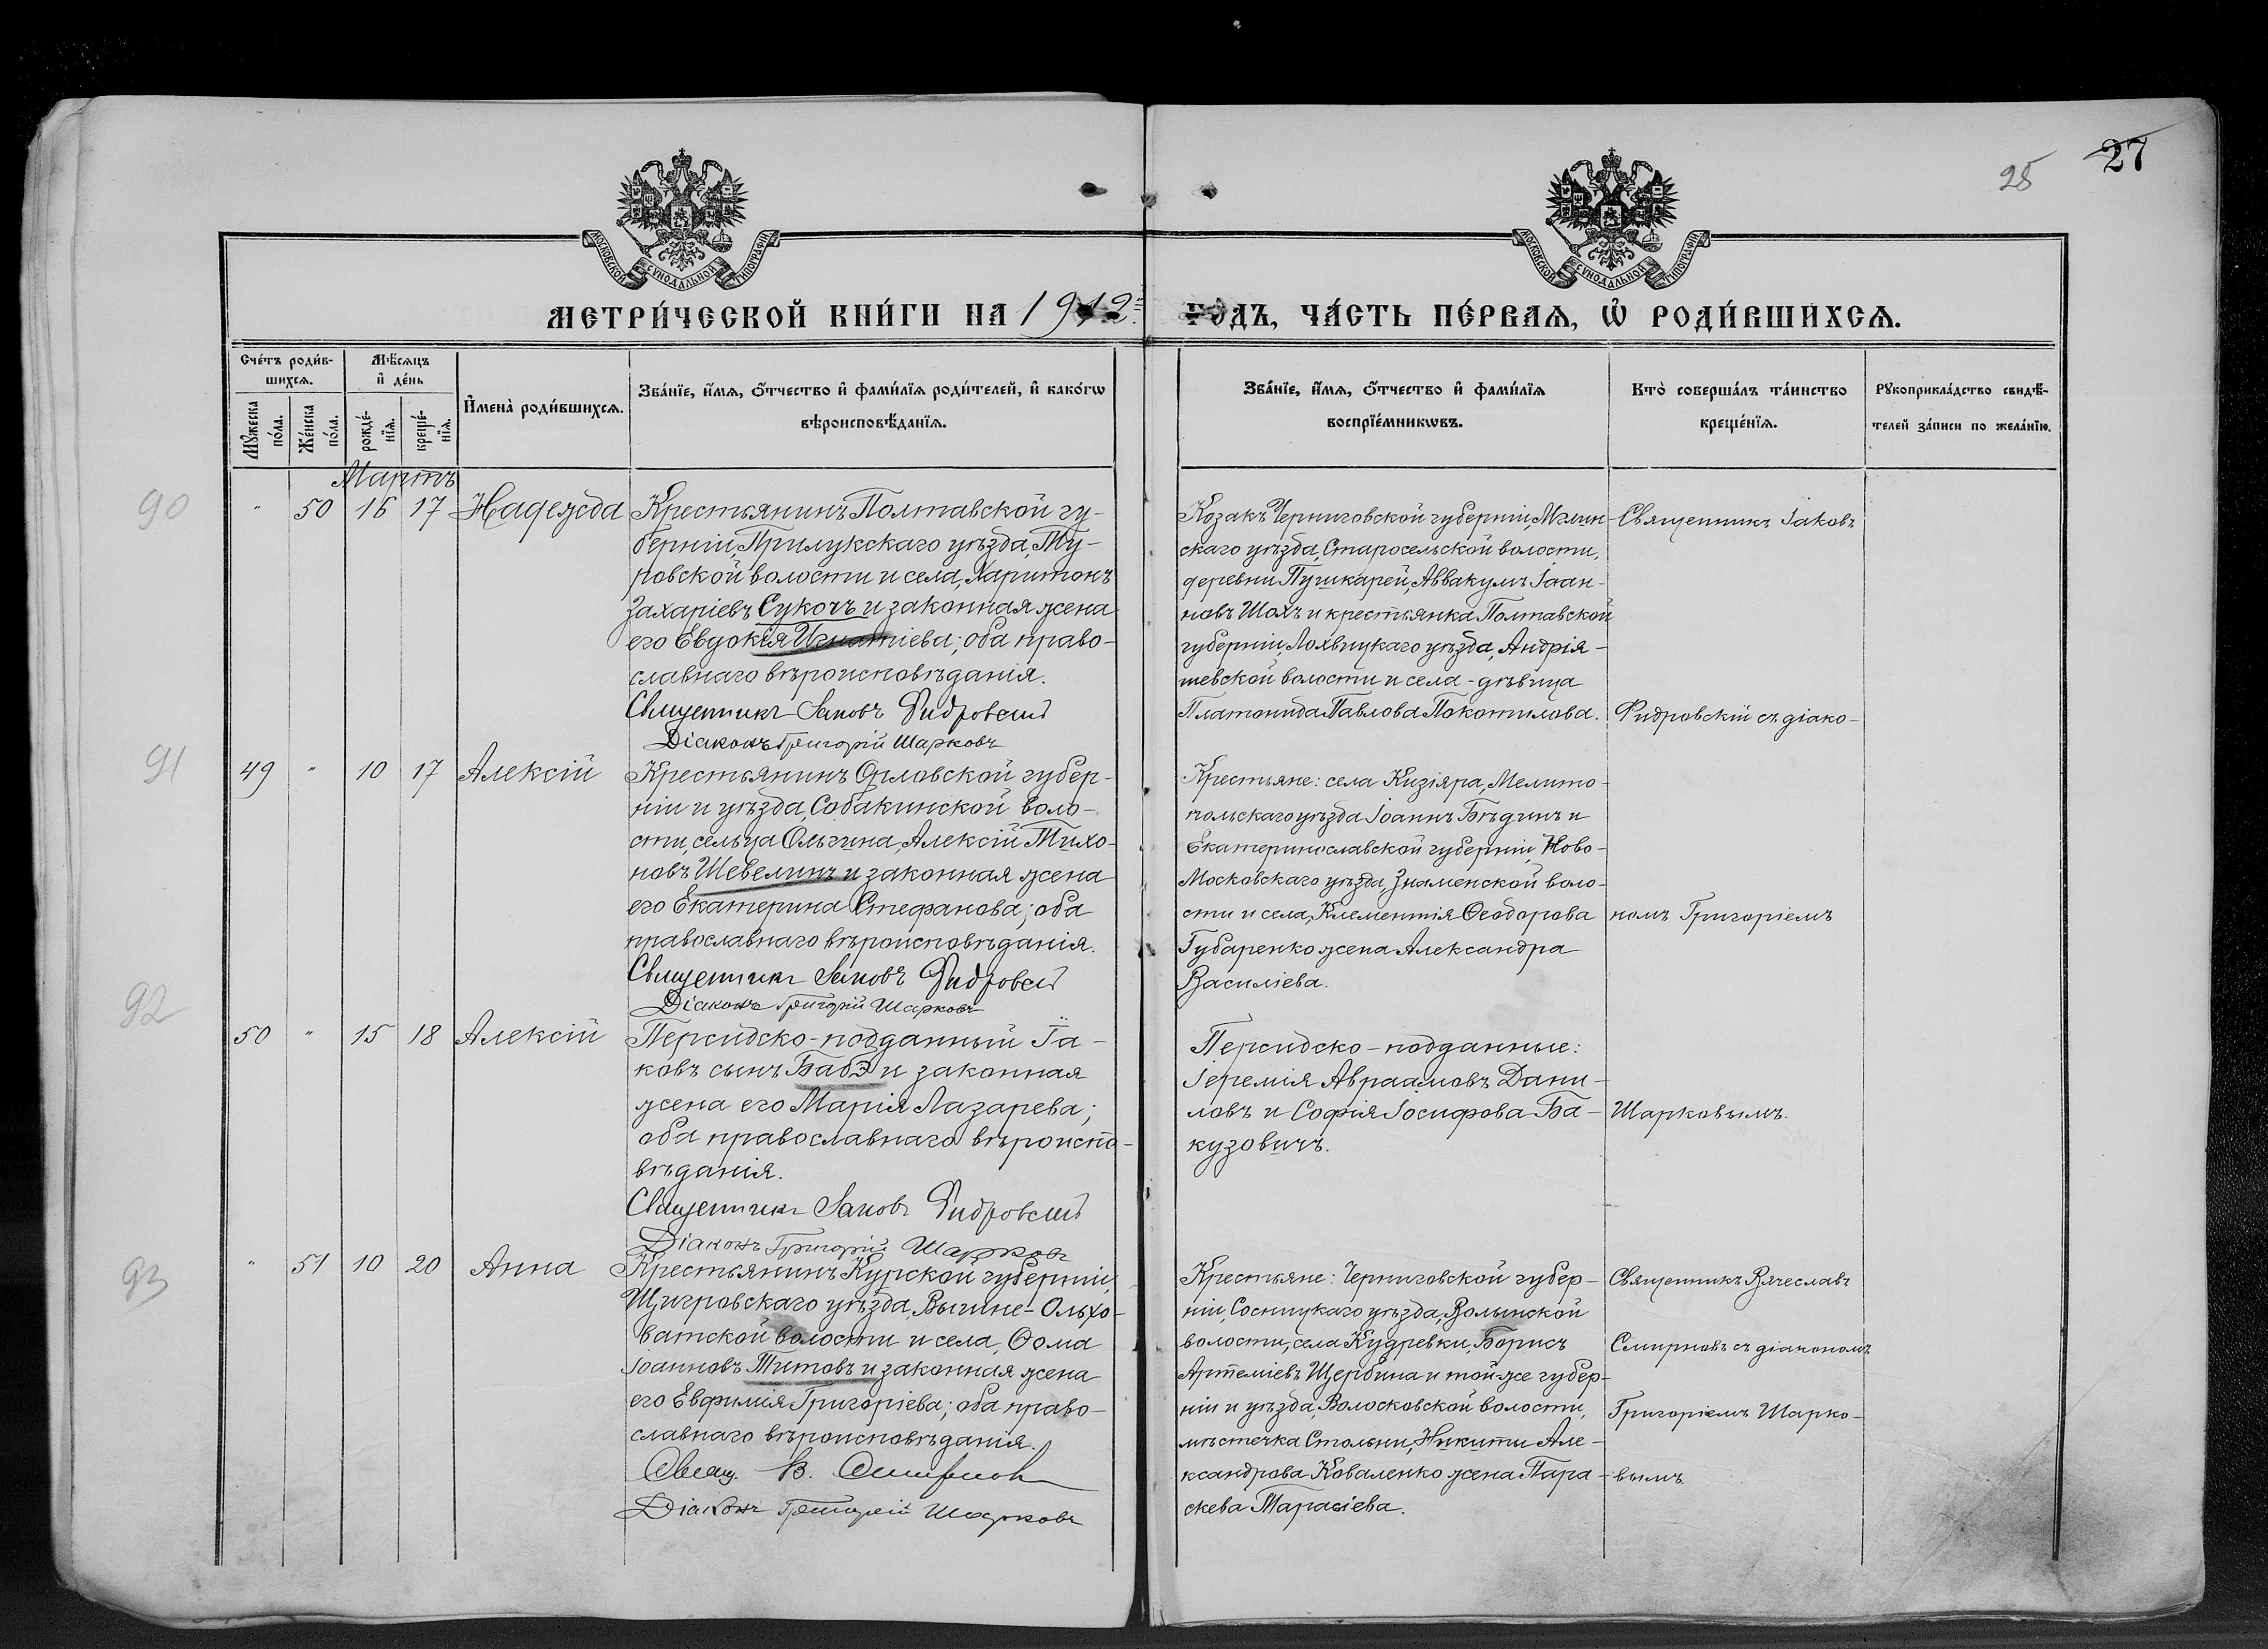 27
25
МОСКОВСКОЙ СѴНОДАЛЬНОЙ ТИПОГРАФІИ
МОСКОВСКОЙ СѴНОДАЛЬНОЙ ТИПОГРАФІИ
МЕТРИ́ЧЕСКОЙ КНИ́ГИ НА 1912 ГОДЪ, ЧА́СТЬ ПЕ́РВАѦ, Ѽ РОДИ́ВШИХСѦ.
Сче́тъ роди́в-
шихсѧ.
Мꙋ́жеска по́ла.
Же́нска по́ла.
Мѣ́сѧцъ
и҆ де́нь
рожде́-
нїѧ.
креще́-
нїѧ.
И҆мена̀ роди́вшихсѧ.
Зва́нїе, и҆́мѧ, ѻ҆́тчество и҆ фами́лїѧ роди́телей, и҆ како́гѡ
вѣроисповѣ́данїѧ.
Зва́нїе, и҆́мѧ, ѻ҆́тчество и҆ фами́лїѧ
воспрїе́мникѡвъ.
Кто̀ соверша́лъ та́инство
креще́нїѧ.
Рꙋкоприкла́дство свидѣ́-
телей за́писи по жела́нїю.
Мартъ
90
" 50 16 17 Надежда
Крестьянинъ Полтавской гу-
берніи, Прилукскаго уѣзда, Ту-
ровской волости и села, Харитонъ
Захаріевъ Сукочъ и законная жена
его Евдокія Игнатіева; оба право-
славнаго вѣроисповѣданія.
Священникъ Іаковъ Фидровскій
Діаконъ Григорій Шарковъ
Козакъ Черниговской губерніи, Мглин-
скаго уѣзда, Старосельской волости,
деревни Пушкарей, Аввакумъ Іоан-
новъ Шохъ и крестьянка Полтавской
губерніи, Лохвицкаго уѣзда, Андрія-
шевской волости и села - дѣвица
Платонида Павлова Покотилова.
Священникъ Іаковъ
Фидровскій съ діако-
91
49 " 10 17 Алексій
Крестьянинъ Орловской губер-
ніи и уѣзда, Собакинской воло-
сти, сельца Ольгина, Алексій Тихо-
новъ Шевелинъ и законная жена
его Екатерина Стефанова; оба
православнаго вѣроисповѣданія.
Священникъ Іаковъ Фидровскій
Діаконъ Григорій Шарковъ
Крестьяне: села Кизіяра, Мелито-
польскаго уѣзда Іоаннъ Бѣдинъ и
Екатеринославской губерніи, Ново-
Московскаго уѣзда, Знаменской воло-
сти и села, Клементія Ѳеодорова
Губаренко жена Александра
Василіева.
номъ Григоріемъ
92
50 " 15 18 Алексій
Персидско-подданный Іа-
ковъ сынъ Бабэ и законная
жена его Марія Лазарева;
оба православнаго вѣроиспо-
вѣданія.
Священникъ Іаковъ Фидровскій
Діаконъ Григорій Шарковъ
Персидско-подданные:
Іеремія Авраамовъ Дани-
ловъ и Софія Іосифова Ба-
кузовичъ.
Шарковымъ.
93
" 51 10 20 Анна
Крестьянинъ Курской губерніи,
Щигровскаго уѣзда, Вышне-Ольхо-
ватской волости и села, Ѳома
Іоанновъ Титовъ и законная жена
его Евфимія Григоріева; оба право-
славнаго вѣроисповѣданія.
Свящ. В. Смирновъ
Діаконъ Григорій Шарковъ
Крестьяне: Черниговской губер-
ніи, Сосницкаго уѣзда, Волынской
волости, села Кудревки, Борисъ
Артеміевъ Щербина и той-же губер-
ніи и уѣзда, Волосковской волости,
мѣстечка Стольни, Никиты Але-
ксандрова Коваленко жена Пара-
скева Тарасіева.
Священникъ Вячеславъ
Смирновъ съ діакономъ
Григоріемъ Шарко-
вымъ.